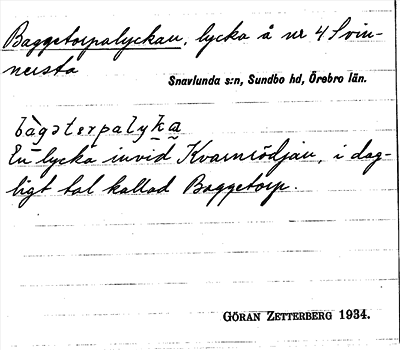 Baggetorpalyckan, lycka å nr 4 Svin-
nersta
Snavlunda s:n, Sundbo hd, Örebro län.
bàgəterpalyka
En lycka invid Kvarnrödjan, i dag-
ligt tal kallad Baggetorp.
GÖRAN ZETTERBERG 1934.